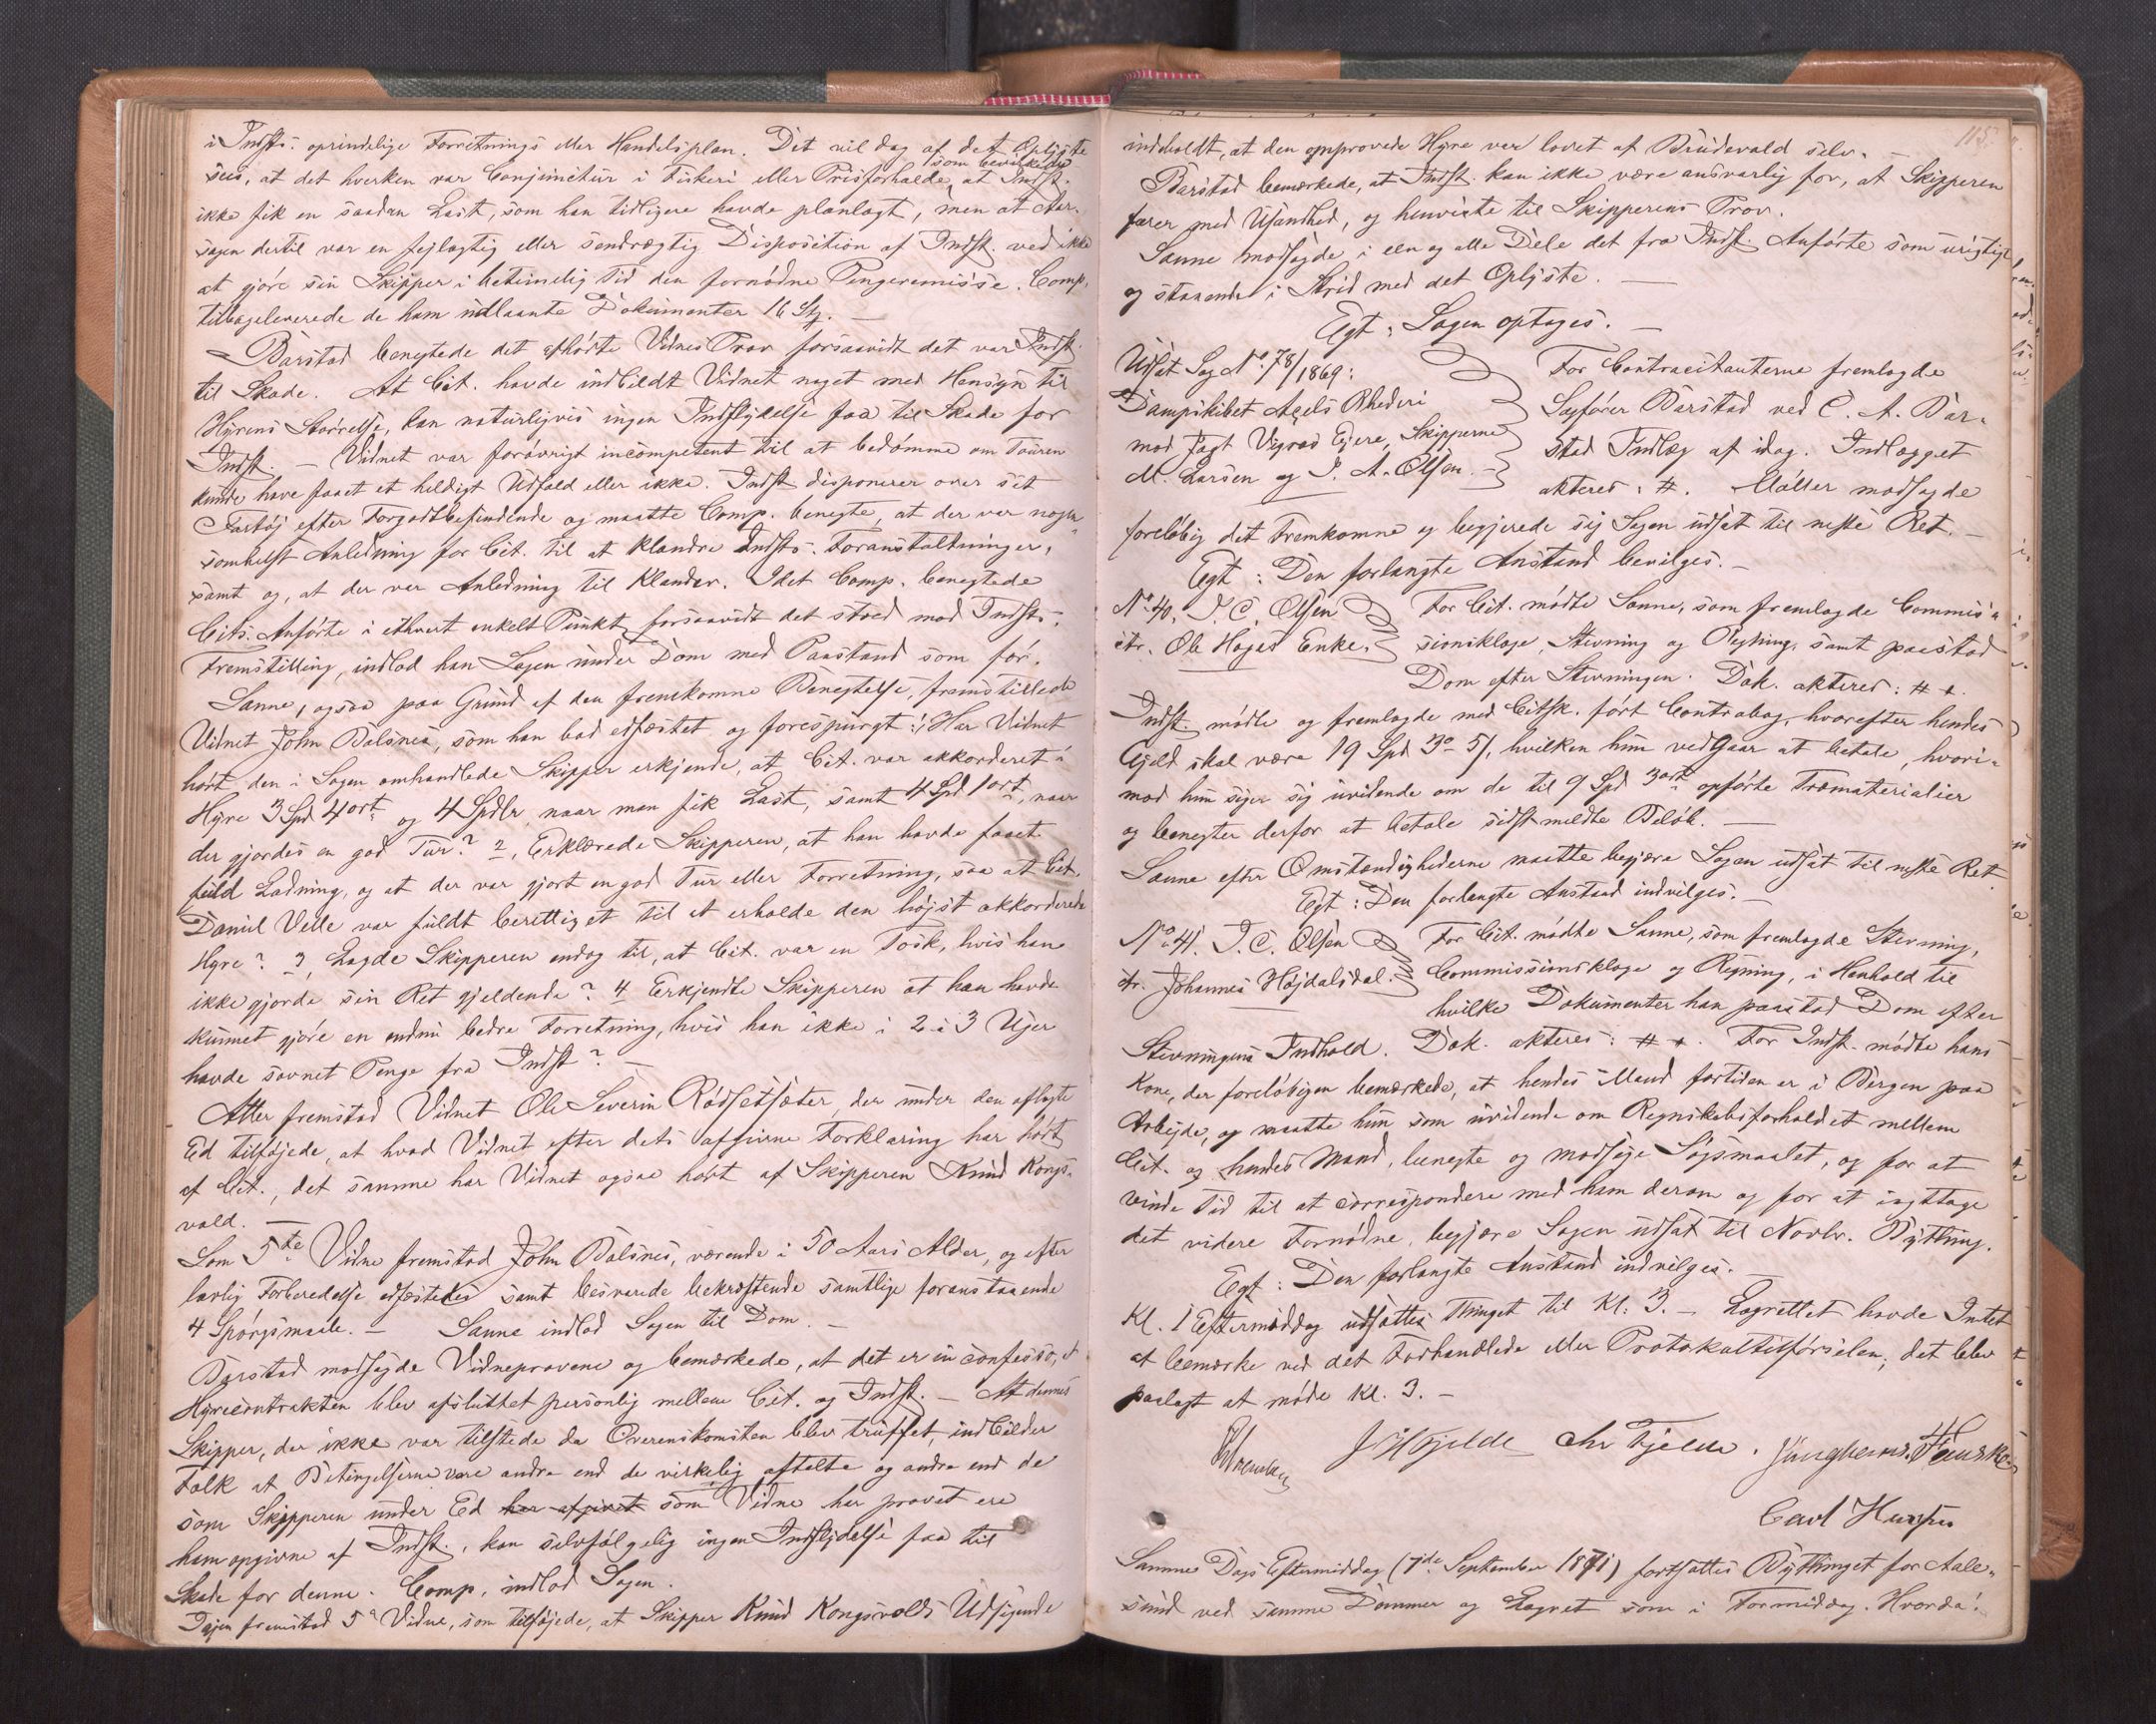 i Indsts. oprindelige Forretnings eller Handelsplan. Det vil dog af det Oplyste
sees, at det hverken var Conjunctur i Fiskeri eller Prisforholde, som bevirkede at Indst.
ikke fik en saadan Last, som han tidligere havde planlagt, men at Aar-
sagen dertil var en fejlagtig eller sendrægtig Disposition af Indst. ved ikke
at gjöre sin Skipper i betimelig Tid den fornødne Pengeremisse. Comp.
tilbageleverede de ham udlaante Dokumenter 16 Stk. —
Barstad benegtede det afhörte Vidnes Prov forsaavidt det var Indst.
til Skade. At Cit. havde indbildt Vidnet noget med Hensyn til
Hyrens Størrelse, kan naturligvis ingen Indflydelse faa til Skade for
Indst. — Vidnet var forövrigt incompetent til at bedömme om Touren
kunde have faaet et heldigt Udfald eller ikke. Indst disponerer over sit
Fartöj efter Forgodtbefindende og maatte Comp. benegte, at der var nogen
somhelst Anledning for Cit. til at klandre Indsts. Foranstaltninger,
samt og, at der var Anledning til Klander. Idet Comp. benegtede
Cits. Anförte i ethvert enkelt Punkt forsaavidt det stred mod Indsts.
Fremstilling, indlod han Sagen under Dom med Paastand som för.
Sanne, ogsaa paa Grund af den fremkomne Benegtelse, fremstillede
Vidnet John Balsnes, som han bad edfæstet og forespurgt: 1, Har Vidnet
hört den i Sagen omhandlede Skipper erkjende, at Cit. var akkorderet i
Hyre 3 Spd 4 ort og 4 Spdlr naar man fik Last, samt 4 Spd 1 ort, naar
der gjordes en god Tur? 2, Erklærede Skipperen, at han havde faaet
fuld Ladning, og at der var gjort en god Tur eller Forretning, saa at Cit.
Daniel Velle var fuldt berettiget til at erholde den höjst akkorderede
Hyre? 3, Lagde Skipperen endog til, at Cit. var en Tosk, hvis han
ikke gjorde sin Ret gjeldende? 4 Erkjendte Skipperen at han havde
kunnet gjöre en endnu bedre Forretning, hvis han ikke i 2 à 3 Uger
havde savnet Penge fra Indst? —
Atter fremstod Vidnet Ole Severin Rödsetsæter, der under den aflagte
Ed tilföjede, at hvad Vidnet efter dets afgivne Forklaring har hört
af Cit., det samme har Vidnet ogsaa hört af Skipperen Knud Kongs-
vold. —
Som 5te Vidne fremstod John Balsnes, værende i 50 Aars Alder, og efter
lovlig Forberedelse edfæstedes samt besvarede bekræftende samtlige foranstaaende
4 Spörgsmaale. — Sanne indlod Sagen til Dom. —
Barstad modsagde Vidneprovene og bemærkede, at det er in confesso, at
Hyrecontrakten blev afsluttet personlig mellem Cit. og Indst. — At dennes
Skipper, der ikke var tilstede da Overenskomsten blev truffet, indbilder
Folk at Betingelserne vare andre end de virkelig aftalte og andre end de
som Skipperen under Ed har afgivet som Vidne her provet ere
ham opgivne af Indst., kan selvfølgelig ingen Indflydelse faa til
Skade for denne. Comp. indlod Sagen.
Igjen fremstod 5te Vidne, som tilföjede, at Skipper Knud Kongsvolds Udsigende
115.
indeholdt, at den omprovede Hyre var lovet af Brudevold selv. —
Barstad bemærkede, at Indst. kan ikke være ansvarlig for, at Skipperen
farer med Usandhed, og henviste til Skipperens Prov.
Sanne modsagde i een og alle Dele det fra Indst. Anförte som urigtigt
og staaende i Strid med det Oplyste. —
Egt: Sagen optages. —
Udsat Sag No. 78/1869:
Dampskibet Axels Rhederi
mod Jagt Vigras Ejere, Skipperne
M. Larsen og J. A. Olsen. —
For Contracitanterne fremlagde
Sagförer Barstad ved C. A. Bar-
stad Indlæg af idag. Indlægget
akteres: #. Möller modsagde
foreløbig det Fremkomne og begjerede sig Sagen udsat til neste Ret. —
Egt: Den forlangte Anstand bevilges. —
No. 40. J. C. Olsen
ctr. Ole Hoges Enke.
For Cit. mödte Sanne, som fremlagde Commis-
sionsklage, Stevning og Regning, samt paastod
Dom efter Stevningen. Dok. akteres: # +.
Indst. mödte og fremlagde med Citsk. fört Contrabog, hvorefter hendes
Gjeld skal være 19 Spd 3o 5/, hvilken hun vedgaar at betale, hvori-
mod hun siger sig uvidende om de til 9 Spd 3 ort opförte Træmaterialier
og benegter derfor at betale sidstmeldte Belöb. —
Sanne efter Omstændighederne maatte begjære Sagen udsat til neste Ret.
Egt: Den forlangte Anstand indvilges. —
No. 41. J. C. Olsen
ctr. Johannes Höjdalsdal.
For Cit. mödte Sanne, som fremlagde Stevning,
Commissionsklage og Regning, i Henhold til
hvilke Dokumenter han paastod Dom efter
Stevningens Indhold. Dok. akteres: # +. For Indst. mödte hans
Kone, der foreløbigen bemærkede, at hendes Mand fortiden er i Bergen paa
Arbejde, og maatte hun som uvidende om Regnskabsforholdet mellem
Cit. og hendes Mand, benegte og modsige Sögsmaalet, og for at
vinde Tid til at correspondere med ham derom og for at iagttage
det videre Fornødne, begjære Sagen udsat til Novbr. Bything.
Egt: Den forlangte Anstand indvilges. —
Kl. 1 Eftermiddag udsattes Thinget til Kl. 3. — Lagrettet havde Intet
at bemærke ved det Forhandlede eller Protokoltilførselen; det blev
paalagt at möde Kl. 3. —
Chr Fjelde.
Carl Hu
Samme Dags Eftermiddag (7de September 1871) fortsattes Bythinget for Aale-
sund ved samme Dommer og Lagret som i Formiddag. Hvorda: